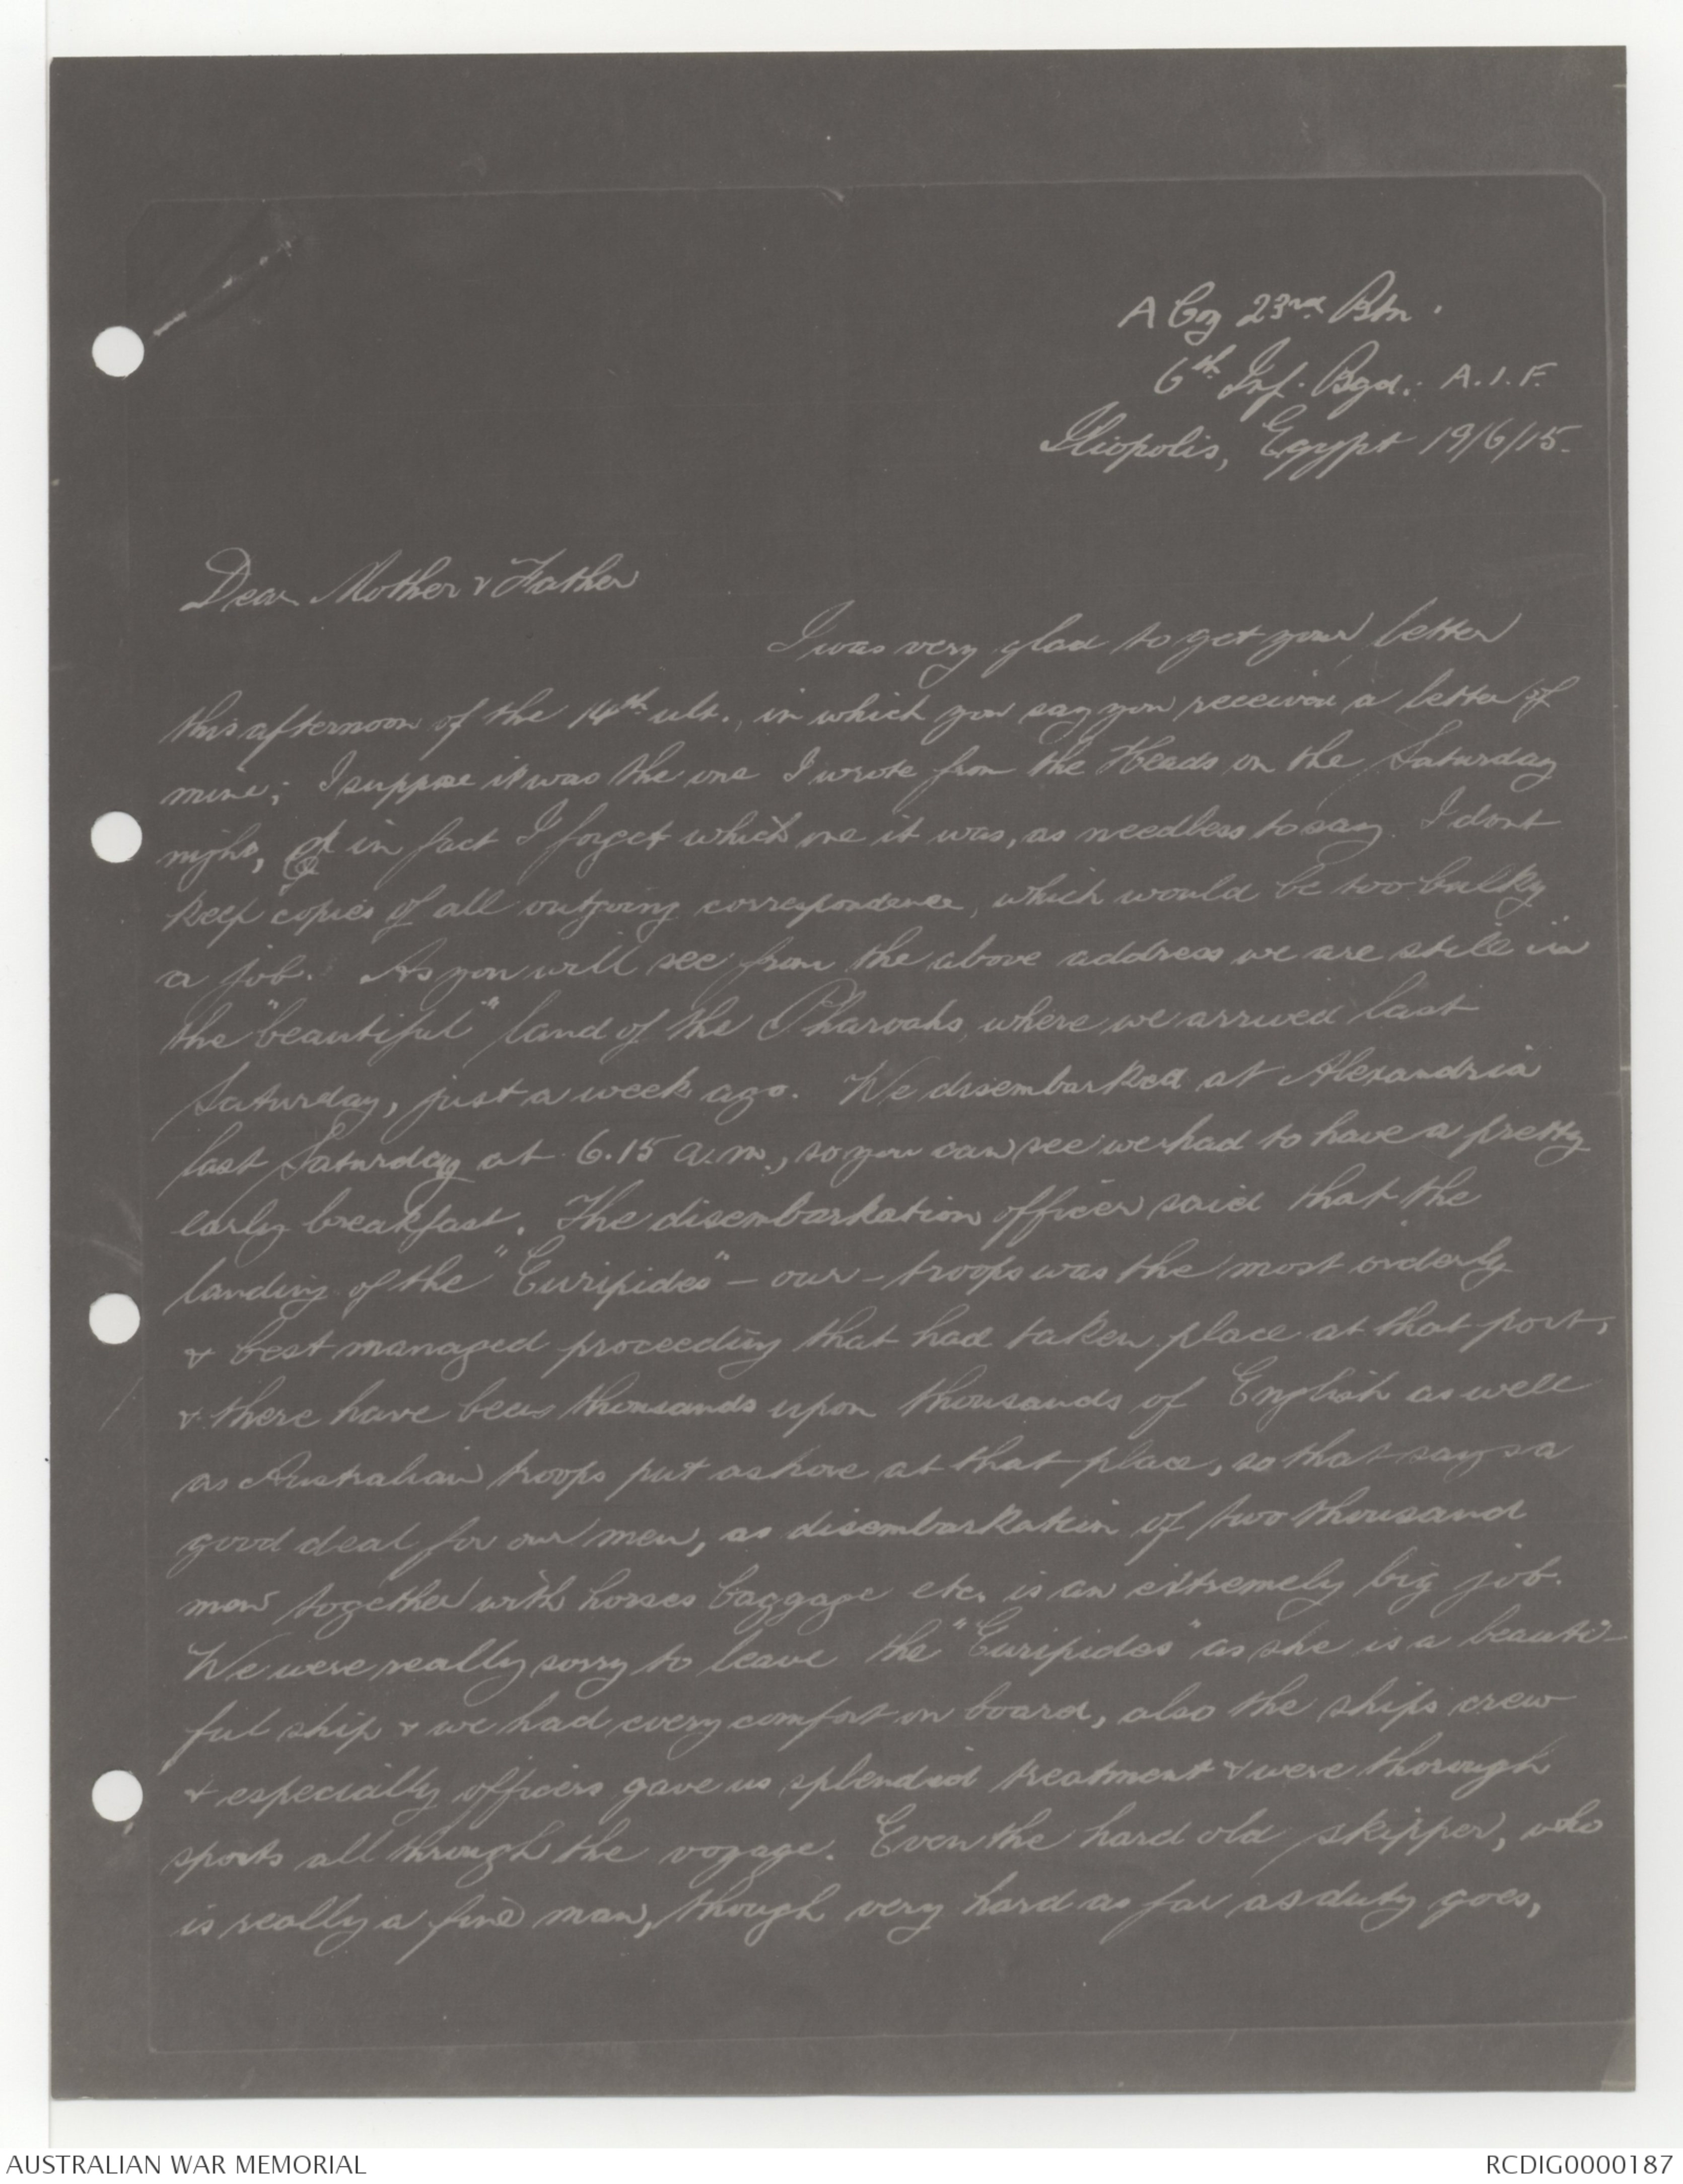 A Coy 23rd Btn.
6th Inf. Bgd. A.I.F.
Iliopolis, Egypt 19/6/15.
Dear Mother & Father
I was very glad to get your letter
this afternoon of the 14th ult., in which you say you received a letter of
mine; I suppose it was the one I wrote from the Heads on the Saturday
night, in fact I forget which one it was, as needless to say I dont
keep copies of all outgoing correspondence, which would be too bulky
a job. As you will see from the above address we are still in
the "beautiful" land of the Pharoahs, where we arrived last
Saturday, just a week ago. We disembarked at Alexandria
last Saturday at 6.15 a.m., so you can see we had to have a pretty
early breakfast. The disembarkation officer said that the
landing of the "Euripides" - our - troops was the most orderly
& best managed proceeding that had taken place at that port,
& there have been thousands upon thousands of English as well
as Australian troops put ashore at that place, so that says a
good deal for our men, as disembarkation of two thousand
men together with horses baggage etc. is an extremely big job.
We were really sorry to leave the "Euripides" as she is a beauti-
ful ship & we had every comfort on board, also the ships crew
& especially officers gave us splendid treatment & were thorough
sports all through the voyage. Even the hard old skipper, who
is really a fine man, though very hard as far as duty goes,
AUSTRALIAN WAR MEMORIAL
RCDIG0000187